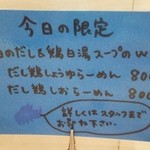 今日の限定
のだし&鶏白湯スープのW
だし鶏しょうゆらーめん 800
だし鶏しおらーめん 800
詳しくはスタッフまで
お尋ね下さい。